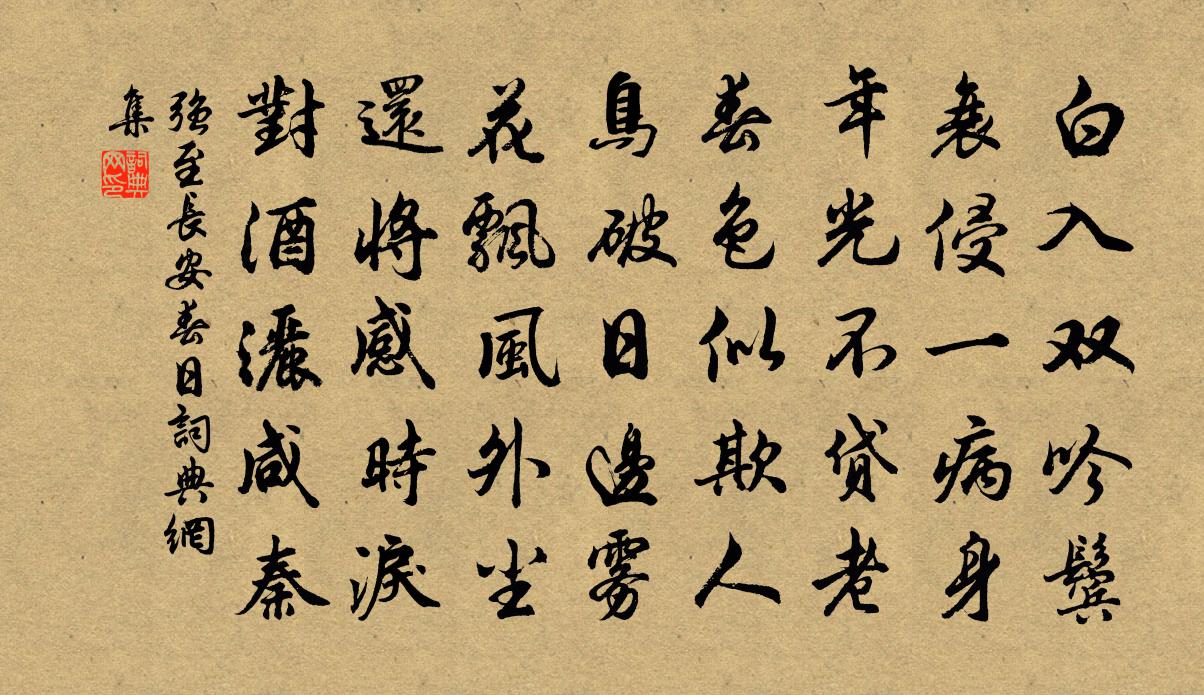 白入双吟鬓
衰侵一病身
年光不贷老
春色似欺人
鳥破日邊雾
花飄風外尘
還將感時淚
對酒灑咸秦
强至長安春日詞典網
集
詞典
网印